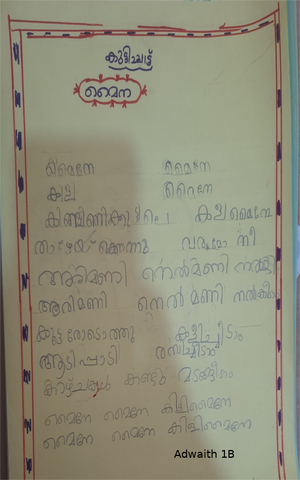 കുട്ടിപ്പാട്ട്
മൈന
മൈനേ മൈനേ
കിങ്ങിണിക്കു
താഴേയ്ക്കൊന്നു വരുമോ നീ
അരിമണി നെൽമണി
അരിമണി നെൽ മണി
കൂട്ടരോടൊത്തു കളിച്ചീടാം
ആടിപ്പാടി രസിച്ചീടാം
കാഴ്ചകൾ കണ്ടു മടങ്ങീടാം
മൈനേ മൈനേ കിളിമൈനേ
മൈനേ മൈനേ കിളിമൈനേ
Adwaith 1B